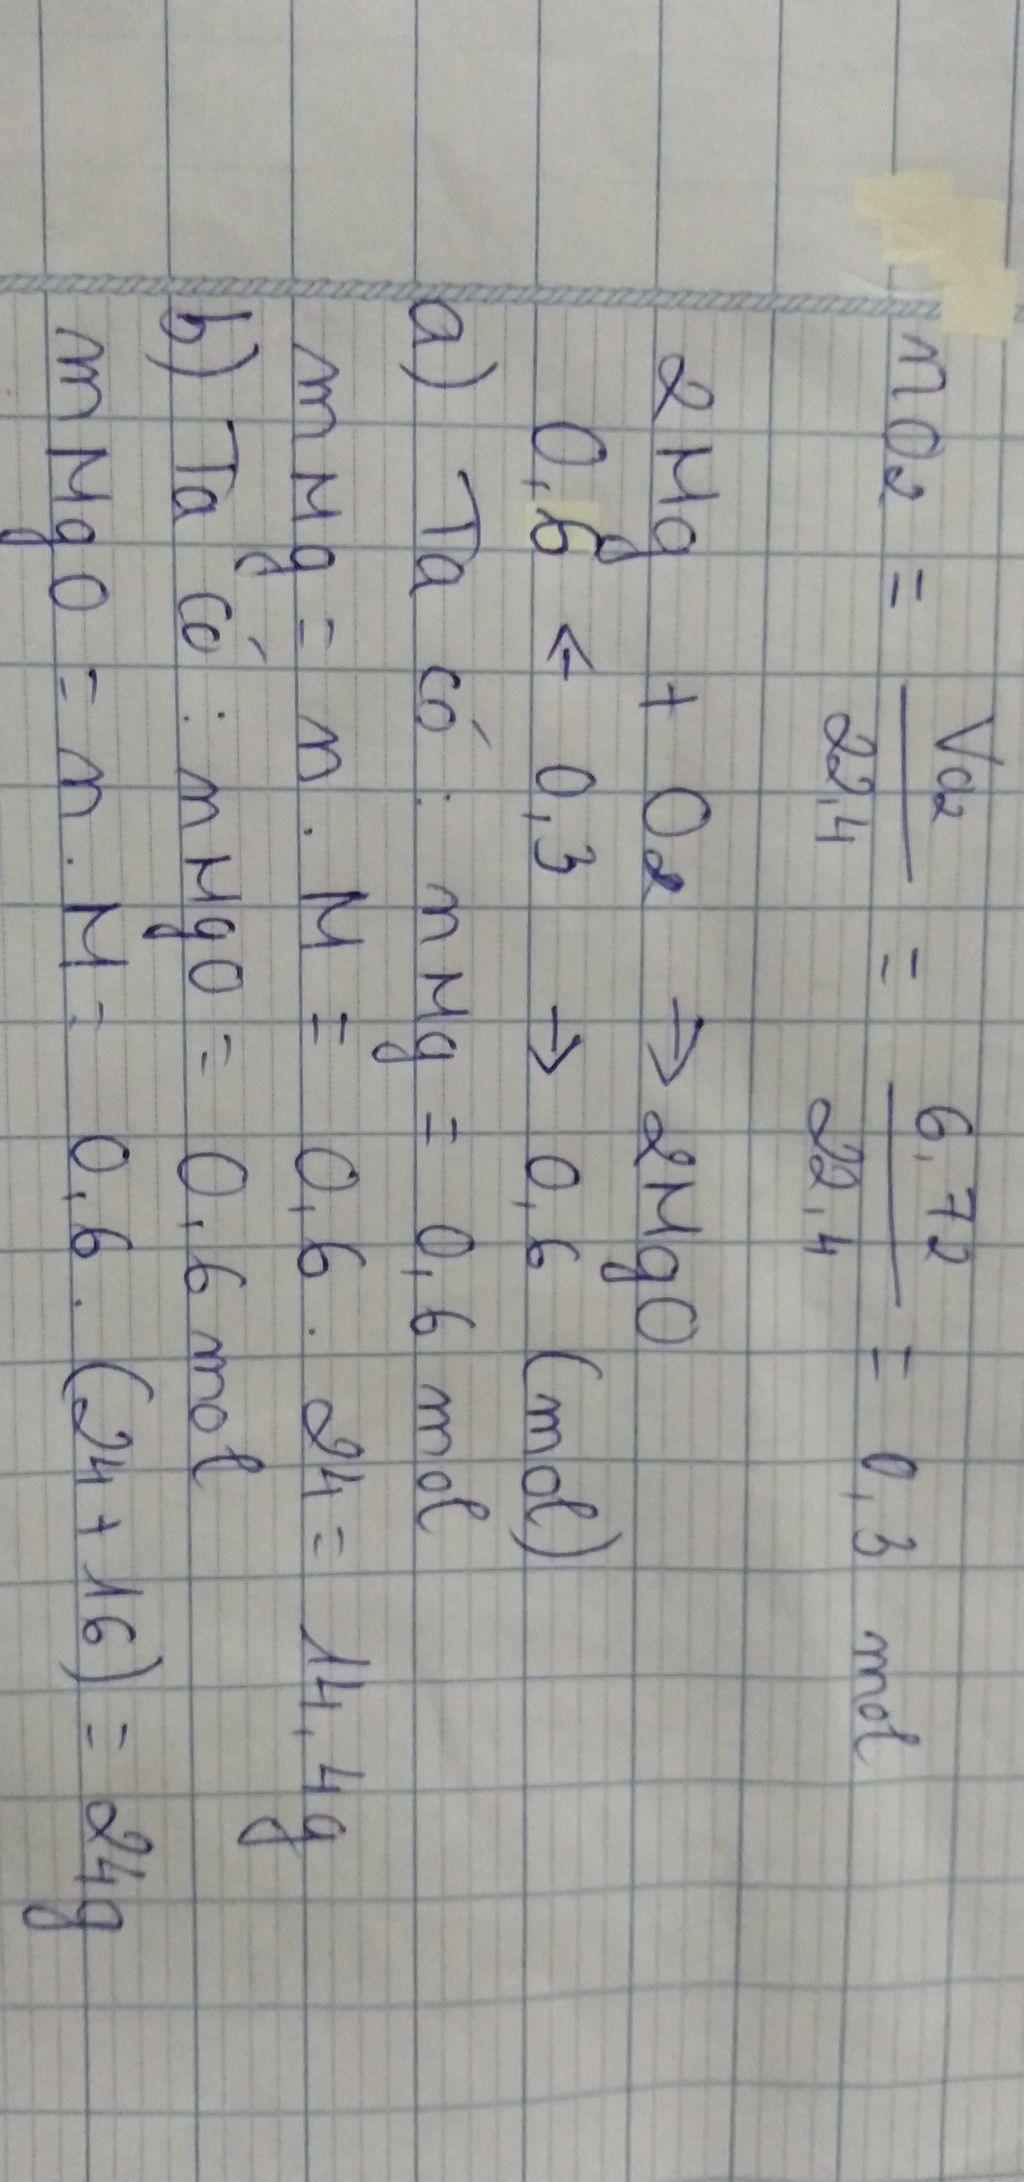 nO2 = VO2/22,4 = 6,72/22,4 = 0,3 mol
2Mg + O2 → 2MgO
0,6 ← 0,3 → 0,6 (mol)
a) Ta có: nMg = 0,6 mol
mMg = n.M = 0,6.24 = 14,4g
b) Ta có: nMgO = 0,6 mol
mMgO = n.M = 0,6.(24+16) = 24g